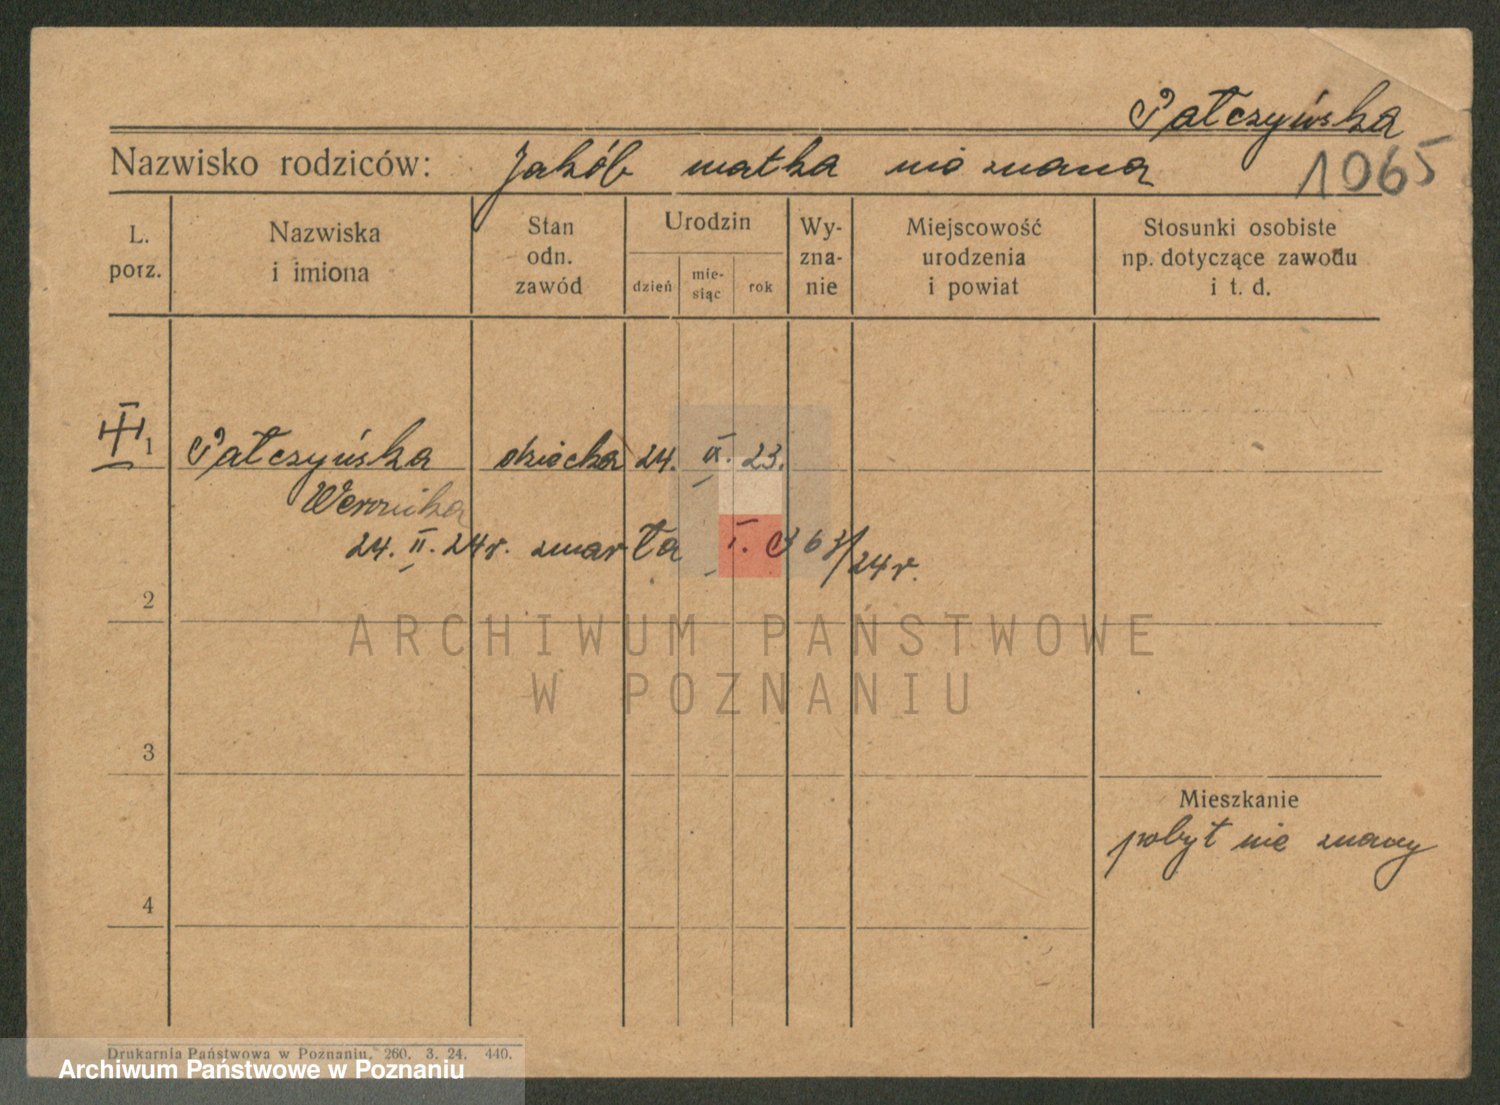 Pałczyńska
Nazwisko rodziców: Jakób matka nie znana
1065
L. porz.
Nazwiska i imiona
Stan odn. zawód
Urodzin
dzień
mie-siąc
rok
Wy-zna-nie
Miejscowość urodzenia i powiat
Stosunki osobiste np. dotyczące zawodu i t. d.
1 Pałczyńska dziecko 24. IX. 23.
Weronika
24. II. 24r. zmarła I. 24r.
2
ARCHIWUM PAŃSTWOWE
W POZNANIU
3
Mieszkanie
pobyt nie znany
4
Drukarnia Państwowa w Poznaniu. 260. 3. 24. 440.
Archiwum Państwowe w Poznaniu